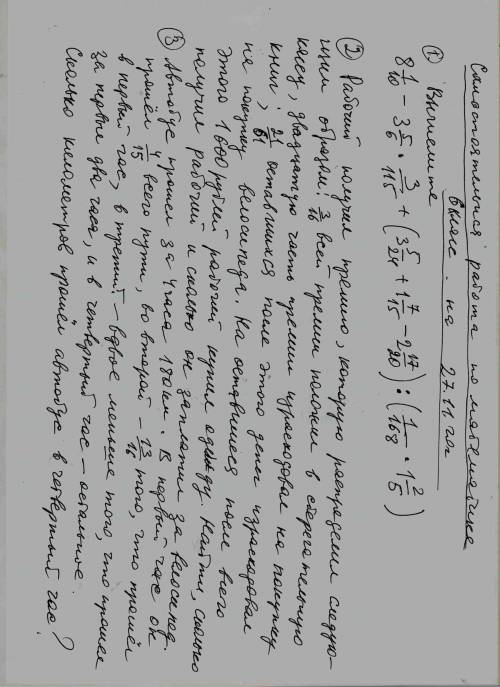 Самостоятельная работа по математике
6 класс. на 27.11.20г
① Вычислите
8 1/10 − 3 5/6 · 3/115 + (3 5/24 + 1 7/15 − 2 17/20) : (1/168 · 1 2/5)
② Рабочий получил премию, которую распределил следую-
щим образом: 3/10 всей премии положил в сберегательную
кассу, двадцатую часть премии израсходовал на покупку
книг, 21/61 оставшихся после этого денег израсходовал
на покупку велосипеда. На оставшиеся после всего
этого 1600 рублей рабочий купил одежду. Найти, сколько
получил рабочий и сколько он заплатил за велосипед.
③ Автобус прошел за 4 часа 180 км. В первый час он
прошёл 4/15 всего пути, во второй – 13/16 того, что прошёл
в первый час, в третий – вдвое меньше того, что прошел
за первые два часа, и в четвертый час – остальное.
Сколько километров прошёл автобус в четвертый час?